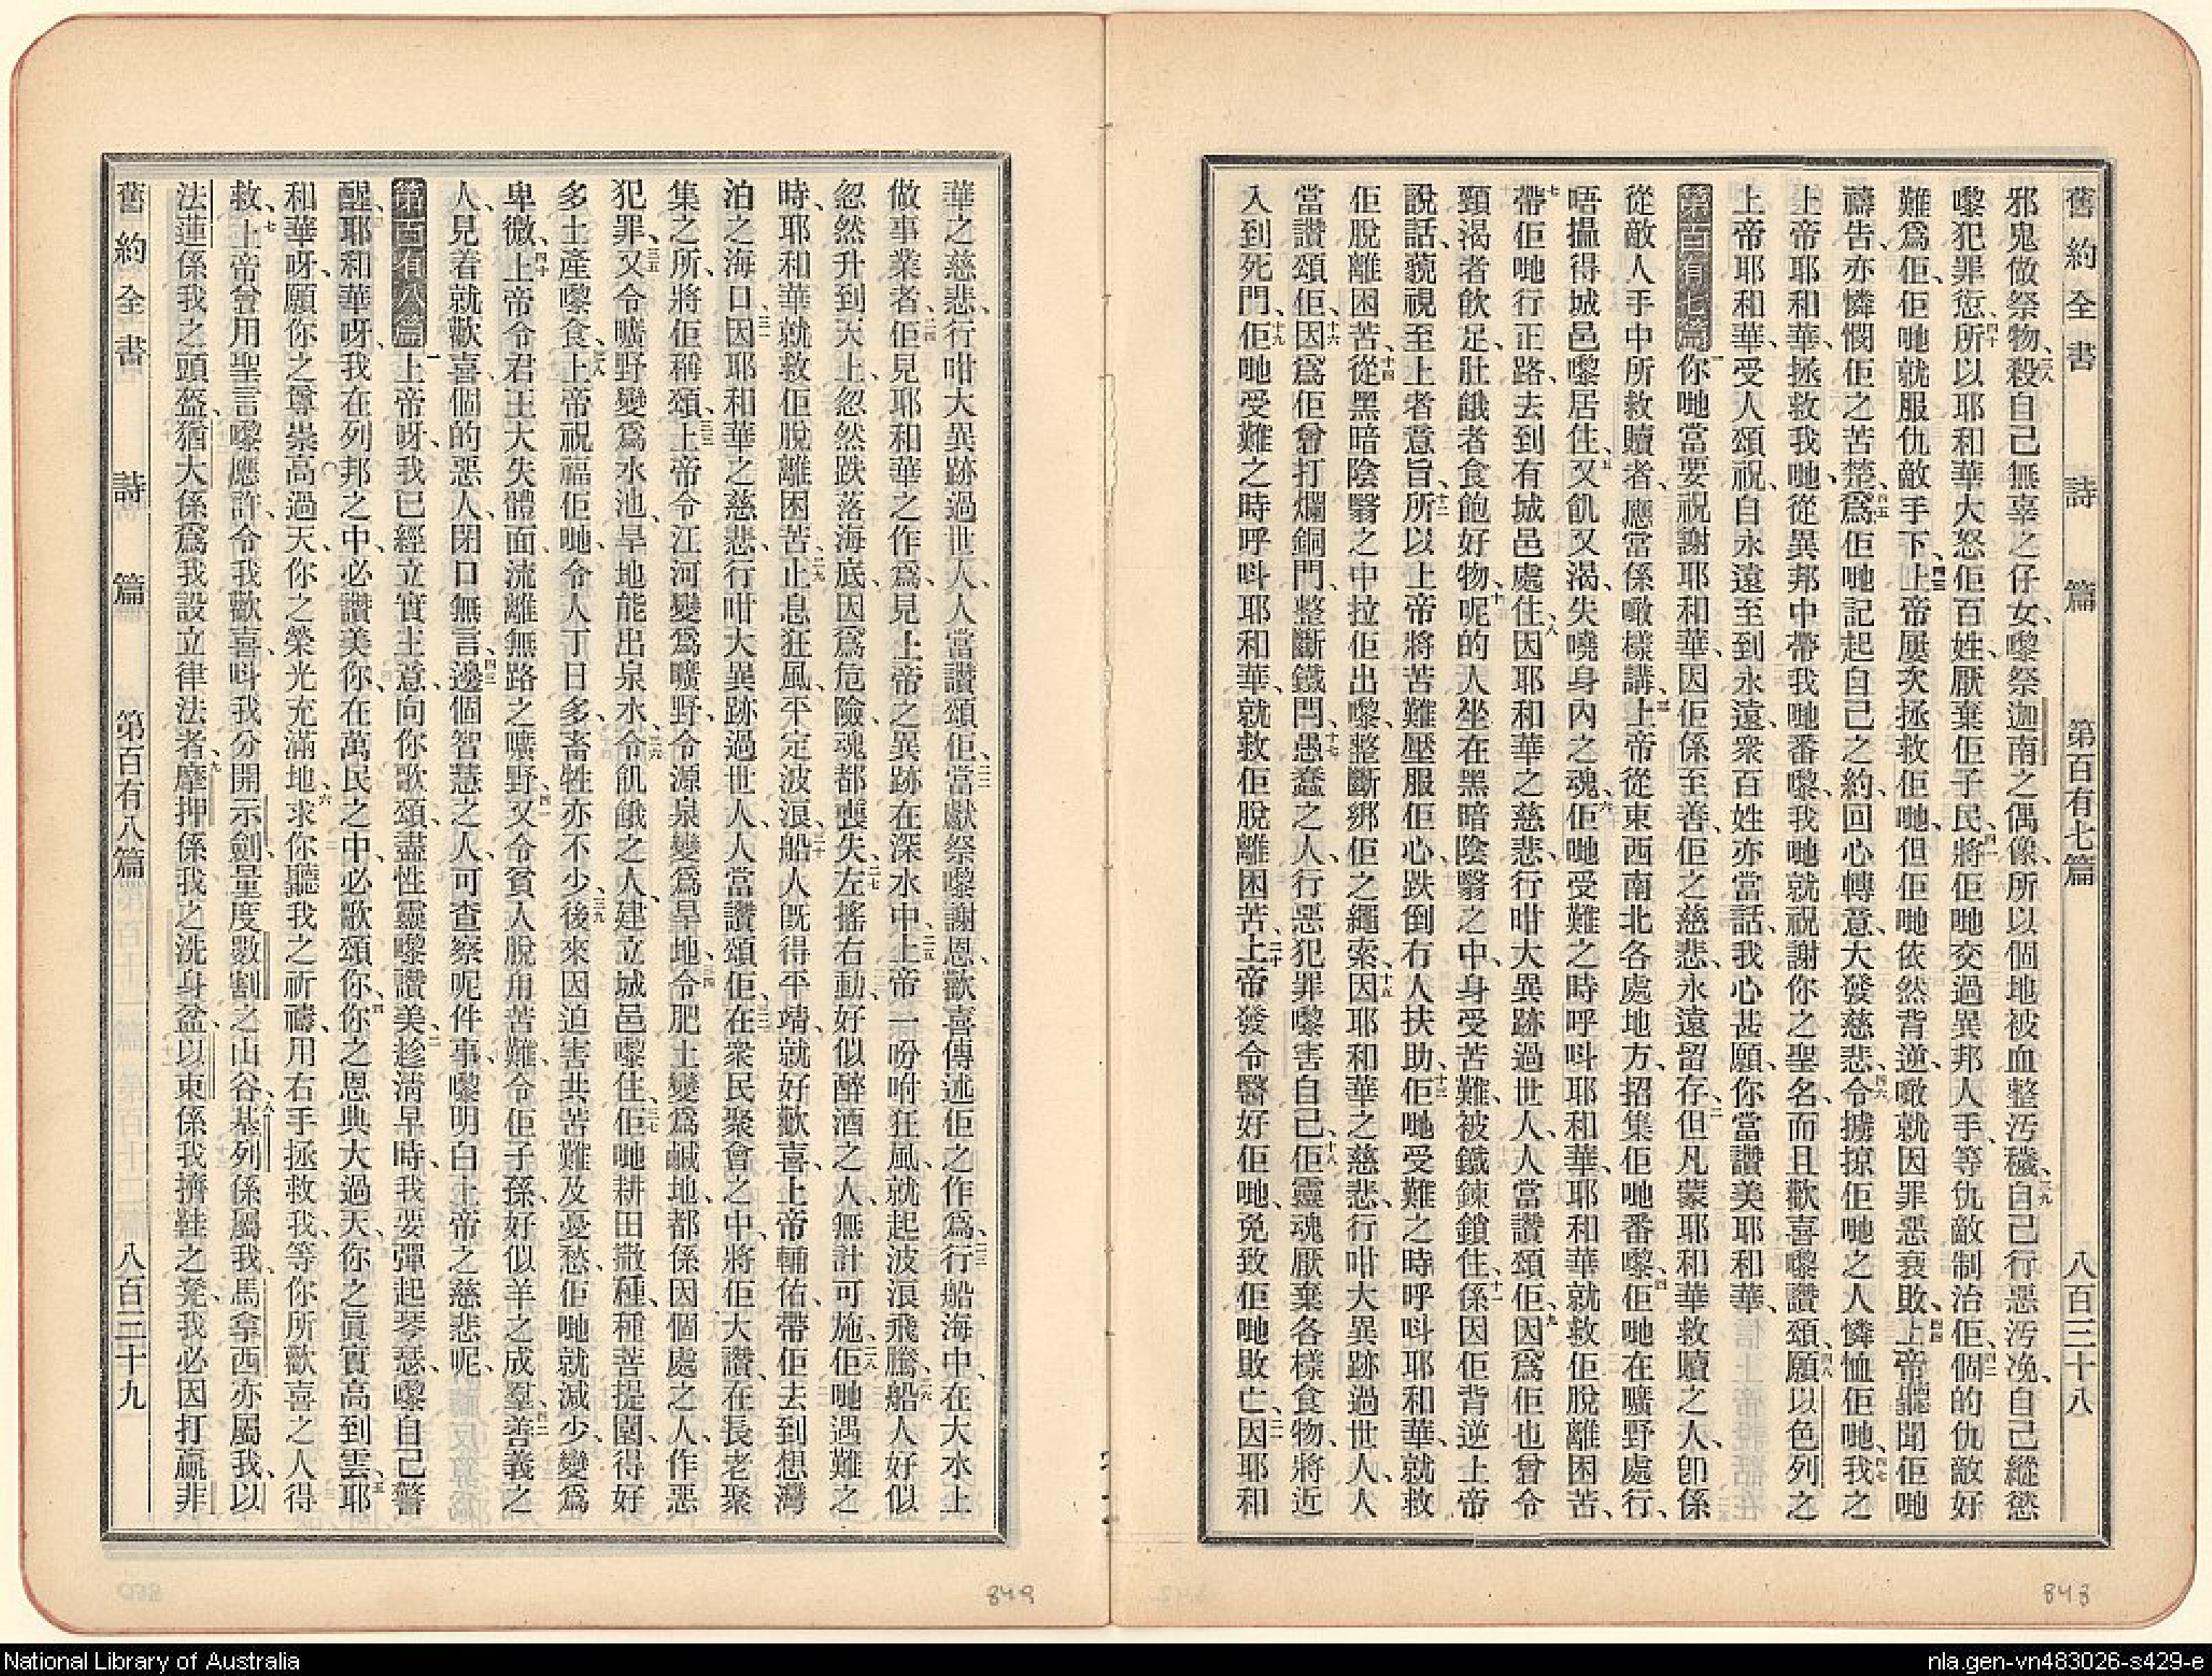 舊約全書 詩篇 第百有七篇 八百三十八
邪鬼做祭物、殺自己無辜之仔女、嚟祭迦南之偶像、所以個地被血整污穢、自己行惡污凂、自己縱慾
嚟犯罪愆、所以耶和華大怒佢百姓、厭棄佢子民、將佢哋交過異邦人手、等仇敵制治佢、個的仇敵好
難爲佢、佢哋就服仇敵手下、上帝屢次拯救佢哋、但佢哋依然背逆、噉就因罪惡衰敗、上帝聽聞佢哋
禱告、亦憐憫佢之苦楚、爲佢哋記起自己之約、回心轉意、大發慈悲、令擄掠佢哋之人憐恤佢哋、我之
上帝耶和華、拯救我哋、從異邦中帶我哋番嚟、我哋就祝謝你之聖名、而且歡喜嚟讚頌、願以色列之
上帝耶和華、受人頌祝、自永遠至到永遠、衆百姓亦當話、我心甚願、你當讚美耶和華、
第百有七篇 你哋當要祝謝耶和華、因佢係至善、佢之慈悲、永遠留存、但凡蒙耶和華救贖之人、卽係
從敵人手中所救贖者、應當係噉樣講、上帝從東西南北各處地方、招集佢哋番嚟、佢哋在曠野處行、
唔搵得城邑嚟居住、又飢又渴、失曉身內之魂、佢哋受難之時、呼呌耶和華、耶和華就救佢脫離困苦、
帶佢哋行正路、去到有城邑處住、因耶和華之慈悲、行咁大異跡過世人、人當讚頌佢、因爲佢也曾令
頸渴者飲足、肚餓者食飽好物、呢的人坐在黑暗陰翳之中、身受苦難、被鐵鍊鎖住、係因佢背逆上帝
說話、藐視至上者意旨、所以上帝將苦難壓服佢心、跌倒冇人扶助、佢哋受難之時、呼呌耶和華、就救
佢脫離困苦、從黑暗陰翳之中拉佢出嚟、整斷綁佢之繩索、因耶和華之慈悲、行咁大異跡過世人、人
當讚頌佢、因爲佢曾打爛銅門、整斷鐵閂、愚蠢之人、行惡犯罪嚟害自己、佢靈魂厭棄各樣食物、將近
入到死門、佢哋受難之時、呼呌耶和華、就救佢脫離困苦、上帝發令醫好佢哋、免致佢哋敗亡、因耶和
華之慈悲、行咁大異跡過世人、人當讚頌佢、當獻祭嚟謝恩、歡喜傳述佢之作爲、行船海中、在大水上
做事業者、佢見耶和華之作爲、見上帝之異跡在深水中、上帝一吩咐狂風、就起波浪飛騰、船人好似
忽然升到天上、忽然跌落海底、因爲危險、魂都喪失、左搖右動、好似醉酒之人、無計可施、佢哋遇難之
時、耶和華就救佢脫離困苦、止息狂風、平定波浪、船人旣得平靖、就好歡喜、上帝輔佑、帶佢去到想灣
泊之海口、因耶和華之慈悲、行咁大異跡過世人、人當讚頌佢、在衆民聚會之中、將佢大讚、在長老聚
集之所、將佢稱頌、上帝令江河變爲曠野、令源泉變爲旱地、令肥土變爲鹹地、都係因個處之人、作惡
犯罪、又令曠野變爲水池、旱地能出泉水、令飢餓之人、建立城邑嚟住、佢哋耕田撒種、種菩提園、得好
多土產嚟食、上帝祝福佢哋、令人丁日多、畜牲亦不少、後來因迫害共苦難、及憂愁、佢哋就減少、變爲
卑微、上帝令君王大失體面、流離無路之曠野、又令貧人脫甪苦難、令佢子孫、好似羊之成羣、善義之
人、見着就歡喜、個的惡人、閉口無言、邊個智慧之人、可查察呢件事、嚟明白上帝之慈悲呢、
第百有八篇 上帝呀、我已經立實主意、向你歌頌、盡性靈嚟讚美、趁淸早時、我要彈起琴瑟、嚟自己警
醒、耶和華呀、我在列邦之中、必讚美你、在萬民之中、必歌頌你、你之恩典大過天、你之眞實高到雲、耶
和華呀、願你之尊崇高過天、你之榮光充滿地、求你聽我之祈禱、用右手拯救我、等你所歡喜之人得
救、上帝曾用聖言嚟應許、令我歡喜、呌我分開示劍、量度數割之山谷、基列係屬我、馬拿西亦屬我、以
法蓮係我之頭盔、猶大係爲我設立律法者、摩押係我之洗身盆、以東係我擠鞋之凳、我必因打贏非
舊約全書 詩篇 第百有八篇 八百三十九
849
848
National Library of Australia
nla.gen-vn483026-s429-e